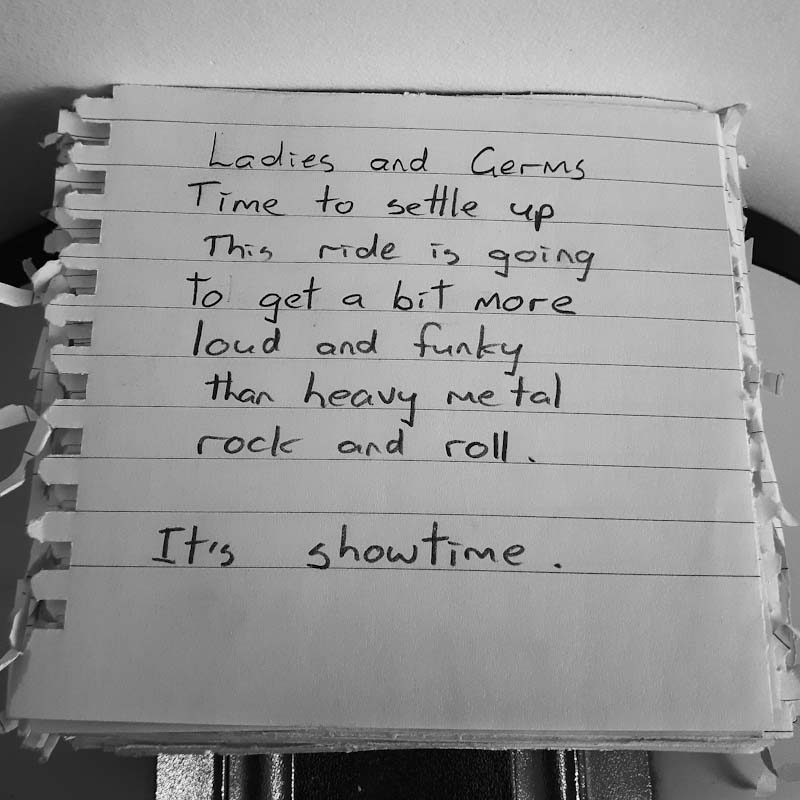 Ladies and Germs
Time to settle up
This ride is going
to get a bit more
loud and funky
than heavy metal
rock and roll.
It's showtime.